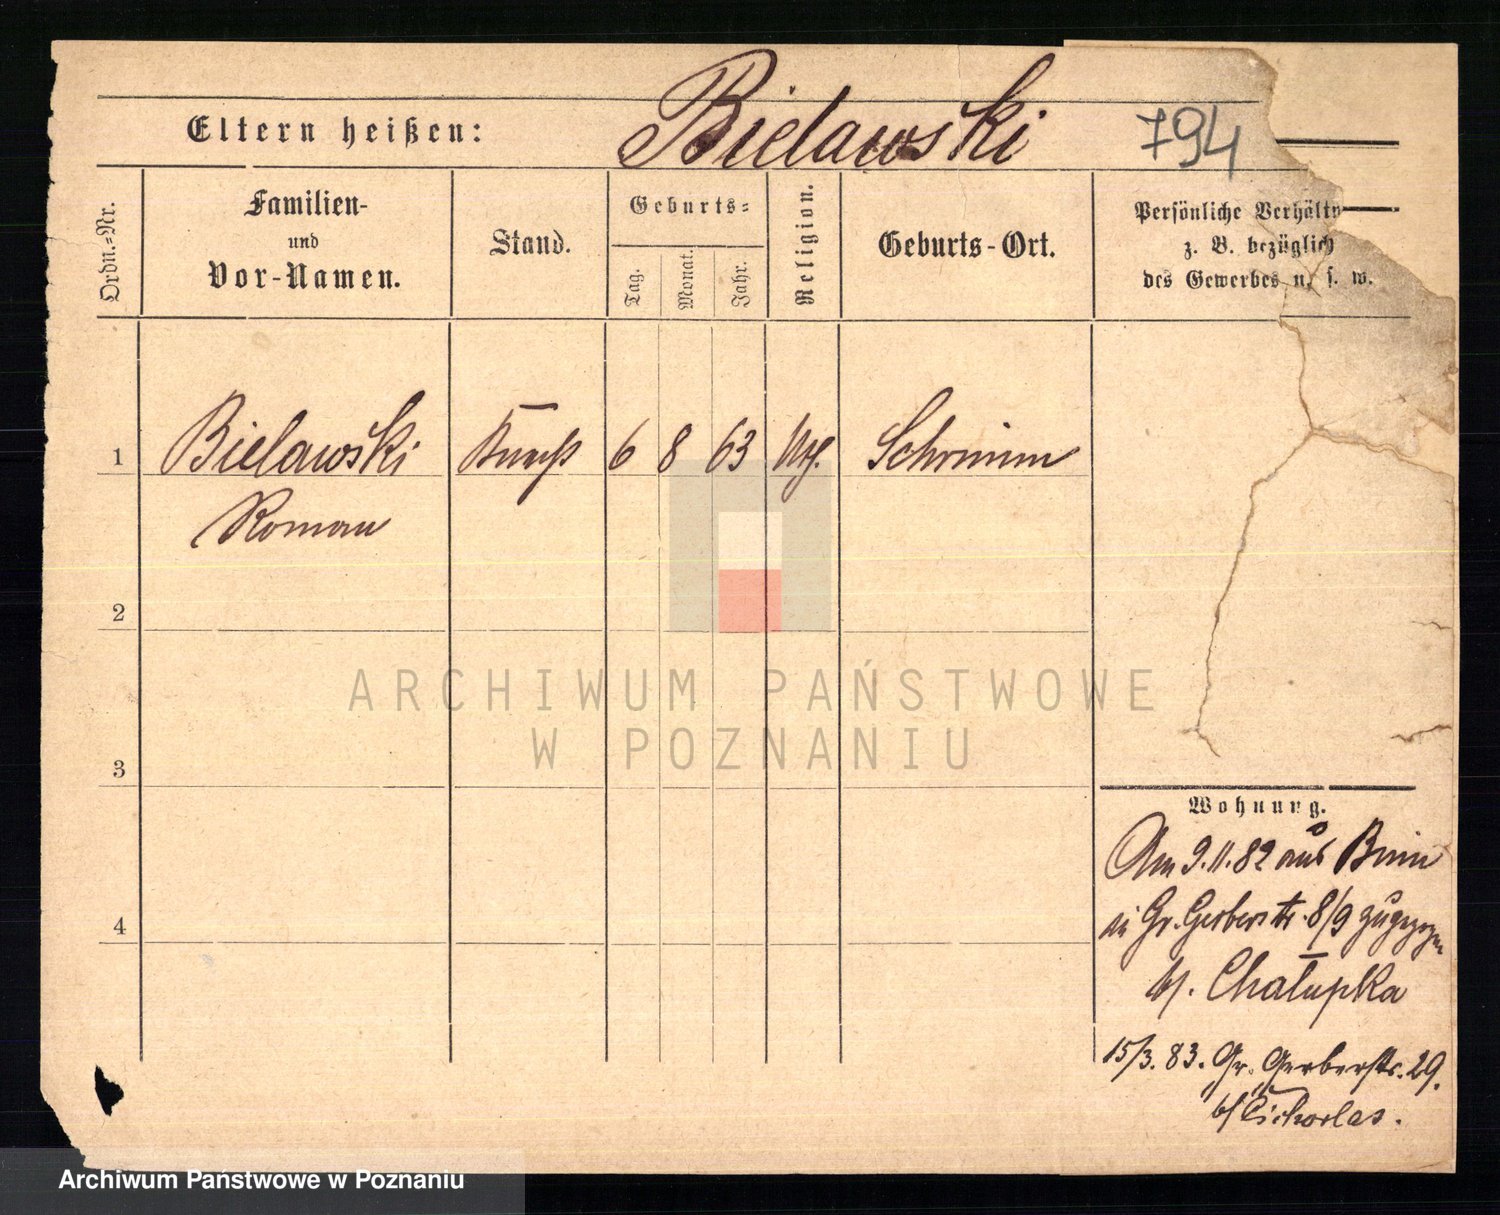 Eltern heißen: Bielawski 794
Ordn.-Nr.
Familien-
und
Vor-Namen.
Stand.
Geburts-
Tag. Monat. Jahr.
Religion.
Geburts-Ort.
Persönliche Verhältn
z. B. bezüglich
des Gewerbes u. s. w.
1 Bielawski 6 8 63 Schrimm
Roman
2
3
4
ARCHIWUM PAŃSTWOWE
W POZNANIU
Wohnung.
Am 9.11.82 aus Bnin
in Gr. Gerberstr. 8/9 zugezogen
b/. Chałupka
15/3. 83. Gr. Gerberstr. 29.
b/
Archiwum Państwowe w Poznaniu